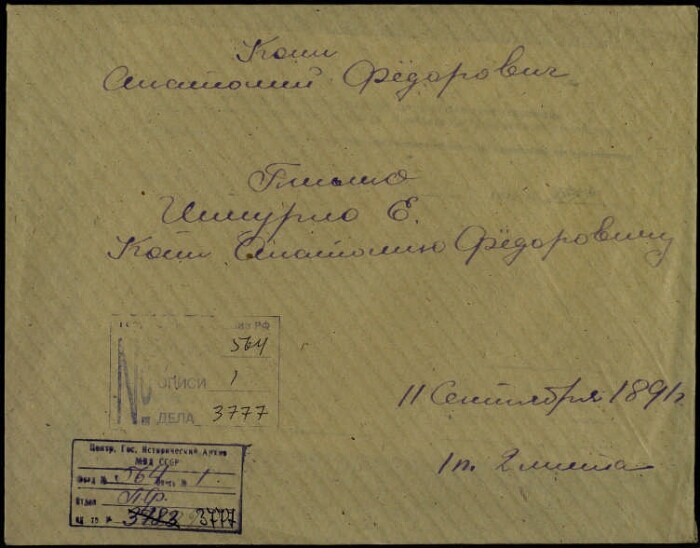 Кони
Анатолий Фёдорович
Письмо
Штурло Е.
Кони Анатолию Фёдоровичу
РФ
564
ОПИСИ 1
ДЕЛА 3777
11 Сентября 1891 г.
1 п. 2 листа
Центр. Гос. Исторический Архив
МВД СССР
Фонд № 564 Опись № 1
Отдел П.Ф.
Ед. хр. № 3983 3777